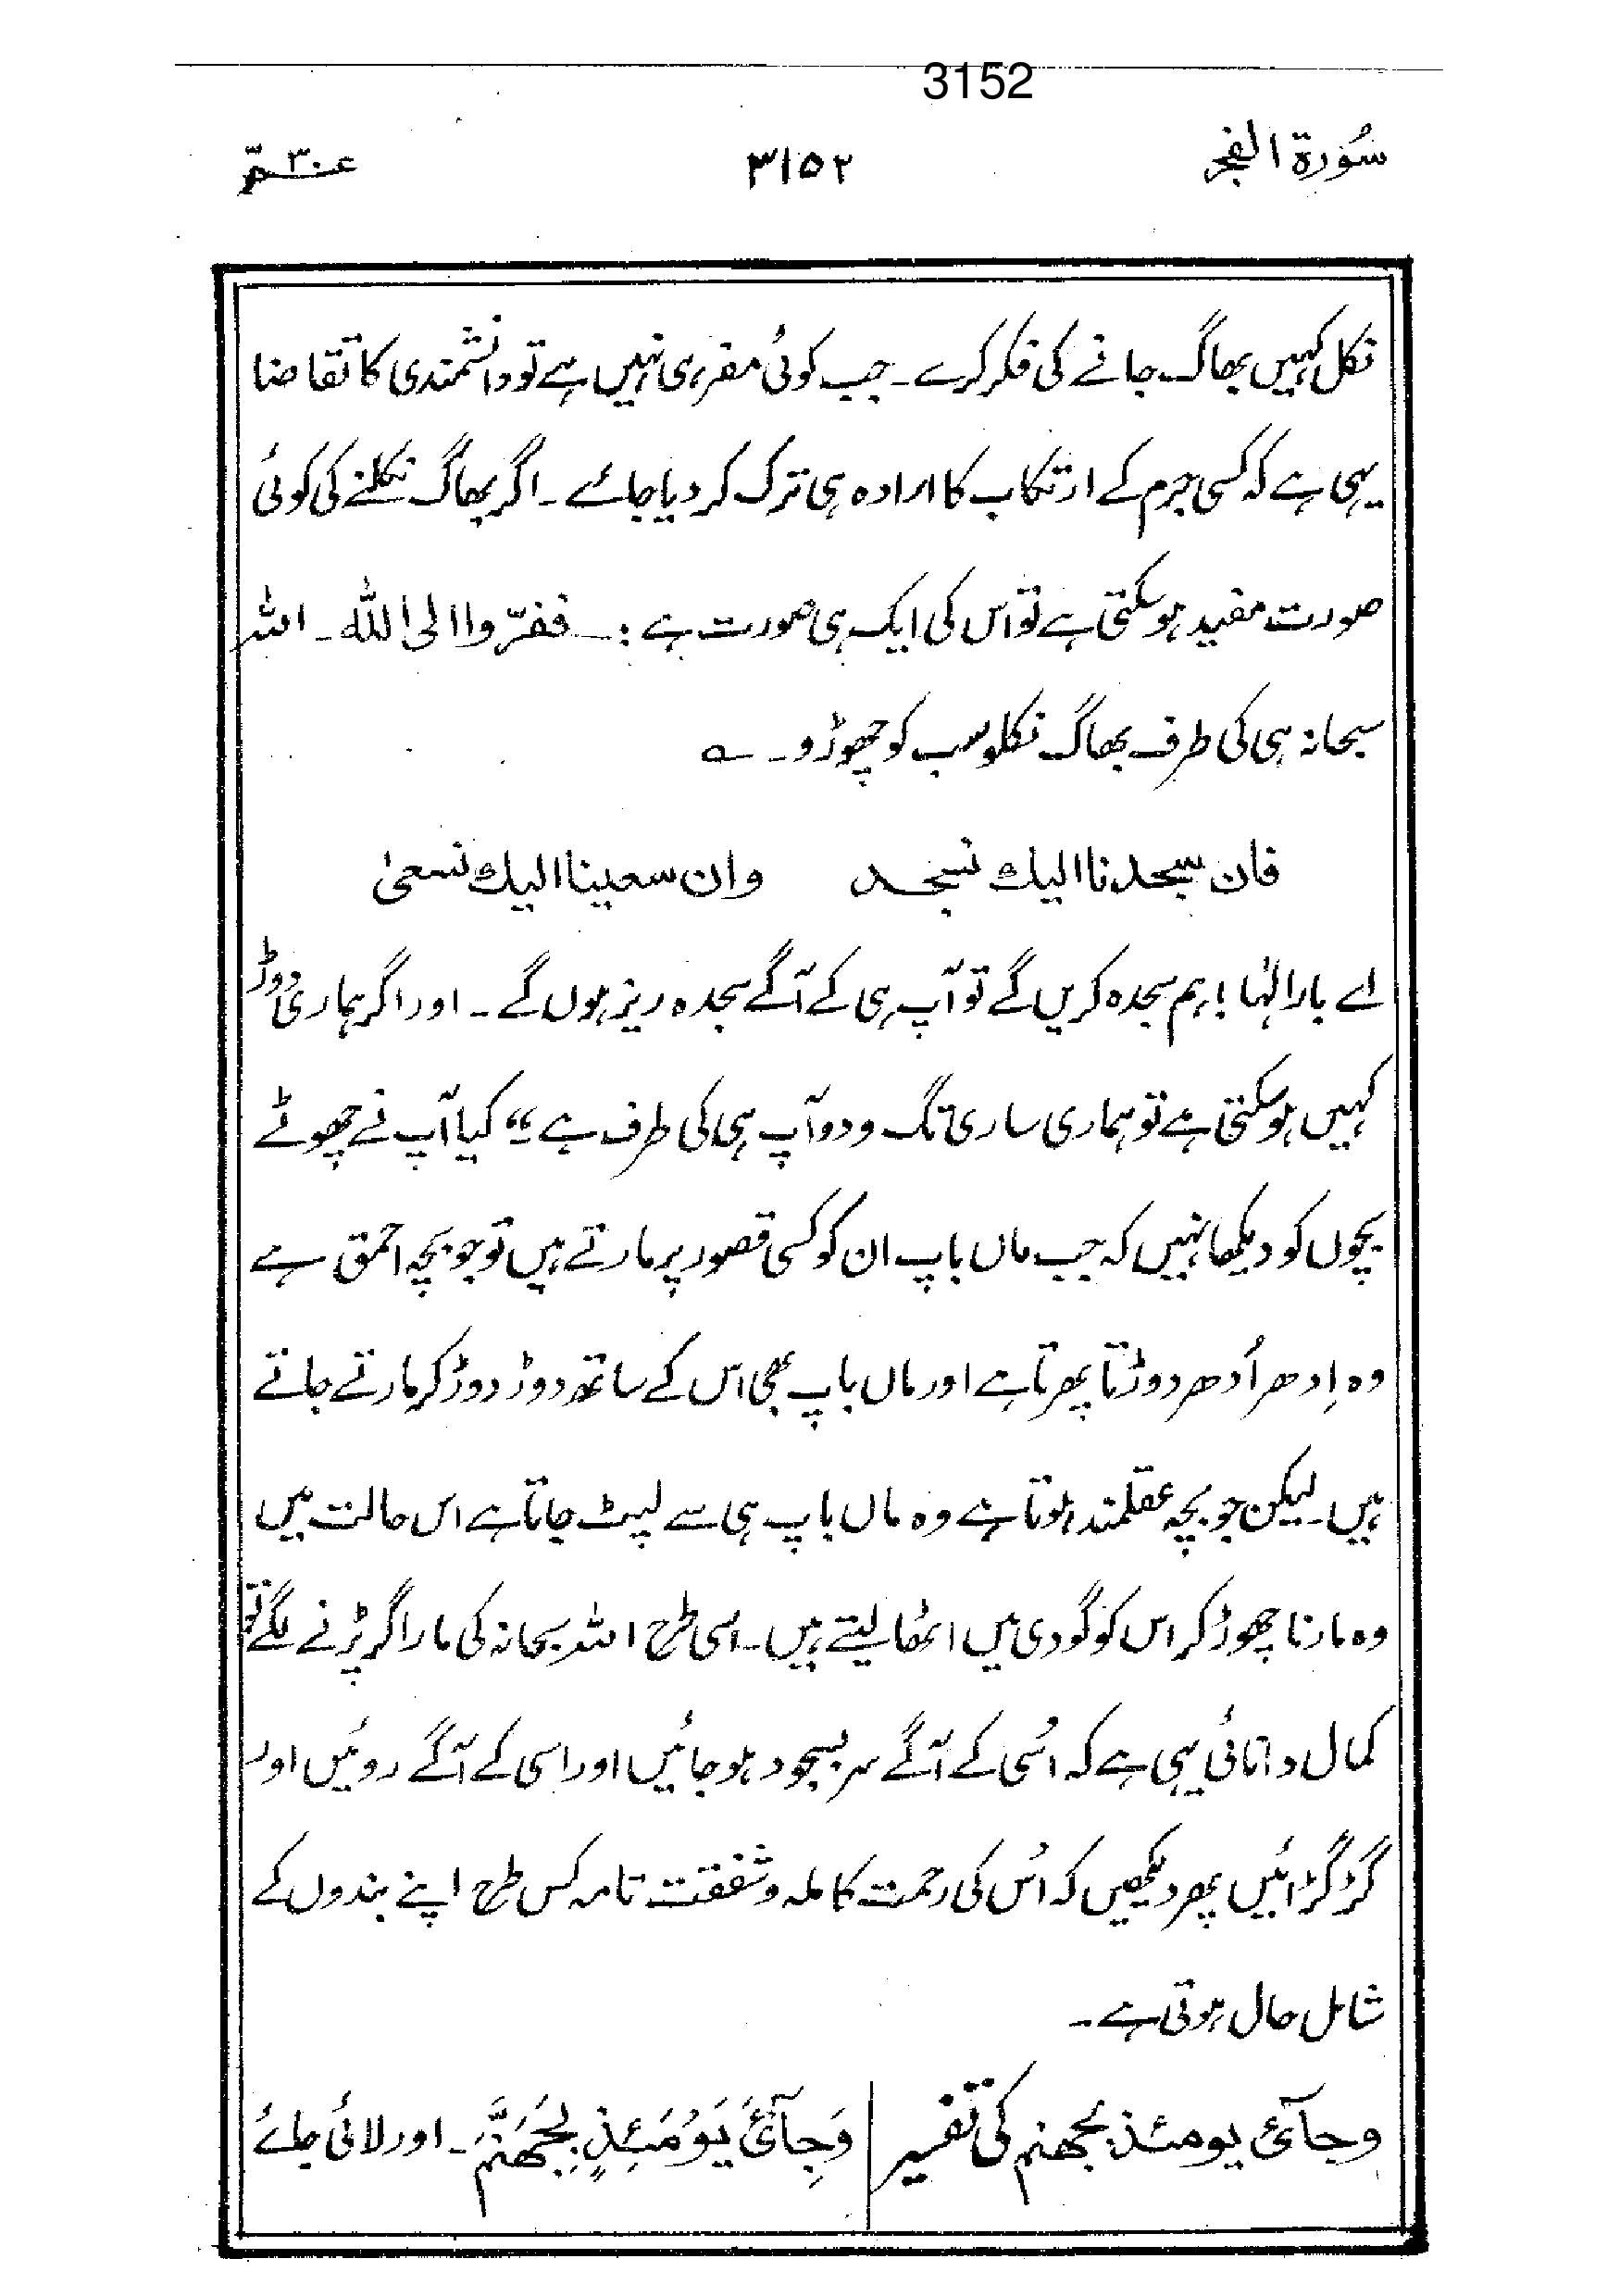 3152
سُورۃ الفجر ۳۱۵۲ عم ۳۰
نکل کہیں بھاگ جانے کی فکر کرے۔ جب کوئی مفر ہی نہیں ہے تو دانشمندی کا تقاضا
یہی ہے کہ کسی جرم کے ارتکاب کا ارادہ ہی ترک کر دیا جائے۔ اگر بھاگ نکلنے کی کوئی
صورت مفید ہو سکتی ہے تو اس کی ایک ہی صورت ہے :۔ ففرّوا الی اللہ۔ اللہ
سبحانہ ہی کی طرف بھاگ نکلو سب کو چھوڑو۔ ؎
فان سجدنا الیك نسجد وان سعینا الیك نسعیٰ
اے بارالٰہا! ہم سجدہ کریں گے تو آپ ہی کے آگے سجدہ ریز ہوں گے۔ اور اگر ہماری دوڑ
کہیں ہو سکتی ہے تو ہماری ساری تگ و دو آپ ہی کی طرف ہے“ کیا آپ نے چھوٹے
بچوں کو دیکھا نہیں کہ جب ماں باپ ان کو کسی قصور پر مارتے ہیں تو جو بچہ احمق ہے
وہ اِدھر اُدھر دوڑتا پھرتا ہے اور ماں باپ بھی اس کے ساتھ دوڑ دوڑ کر مارتے جاتے
ہیں۔ لیکن جو بچہ عقلمند ہوتا ہے وہ ماں باپ ہی سے لپٹ جاتا ہے اس حالت میں
وہ مارنا چھوڑ کر اس کو گودی میں اٹھا لیتے ہیں۔ اسی طرح اللہ سبحانہ کی مار اگر پڑنے لگے تو
کمال دانائی یہی ہے کہ اُسی کے آگے سر بسجود ہو جائیں اور اسی کے آگے روئیں اور
گڑگڑائیں پھر دیکھیں کہ اُس کی رحمت کاملہ و شفقت تامہ کس طرح اپنے بندوں کے
شامل حال ہوتی ہے۔
وجآئ یومئذ بجھنم کی تفسیر | وَجِآئَ یَوْمَئِذٍ بِجَھَنَّمَ۔ اور لائی جائے